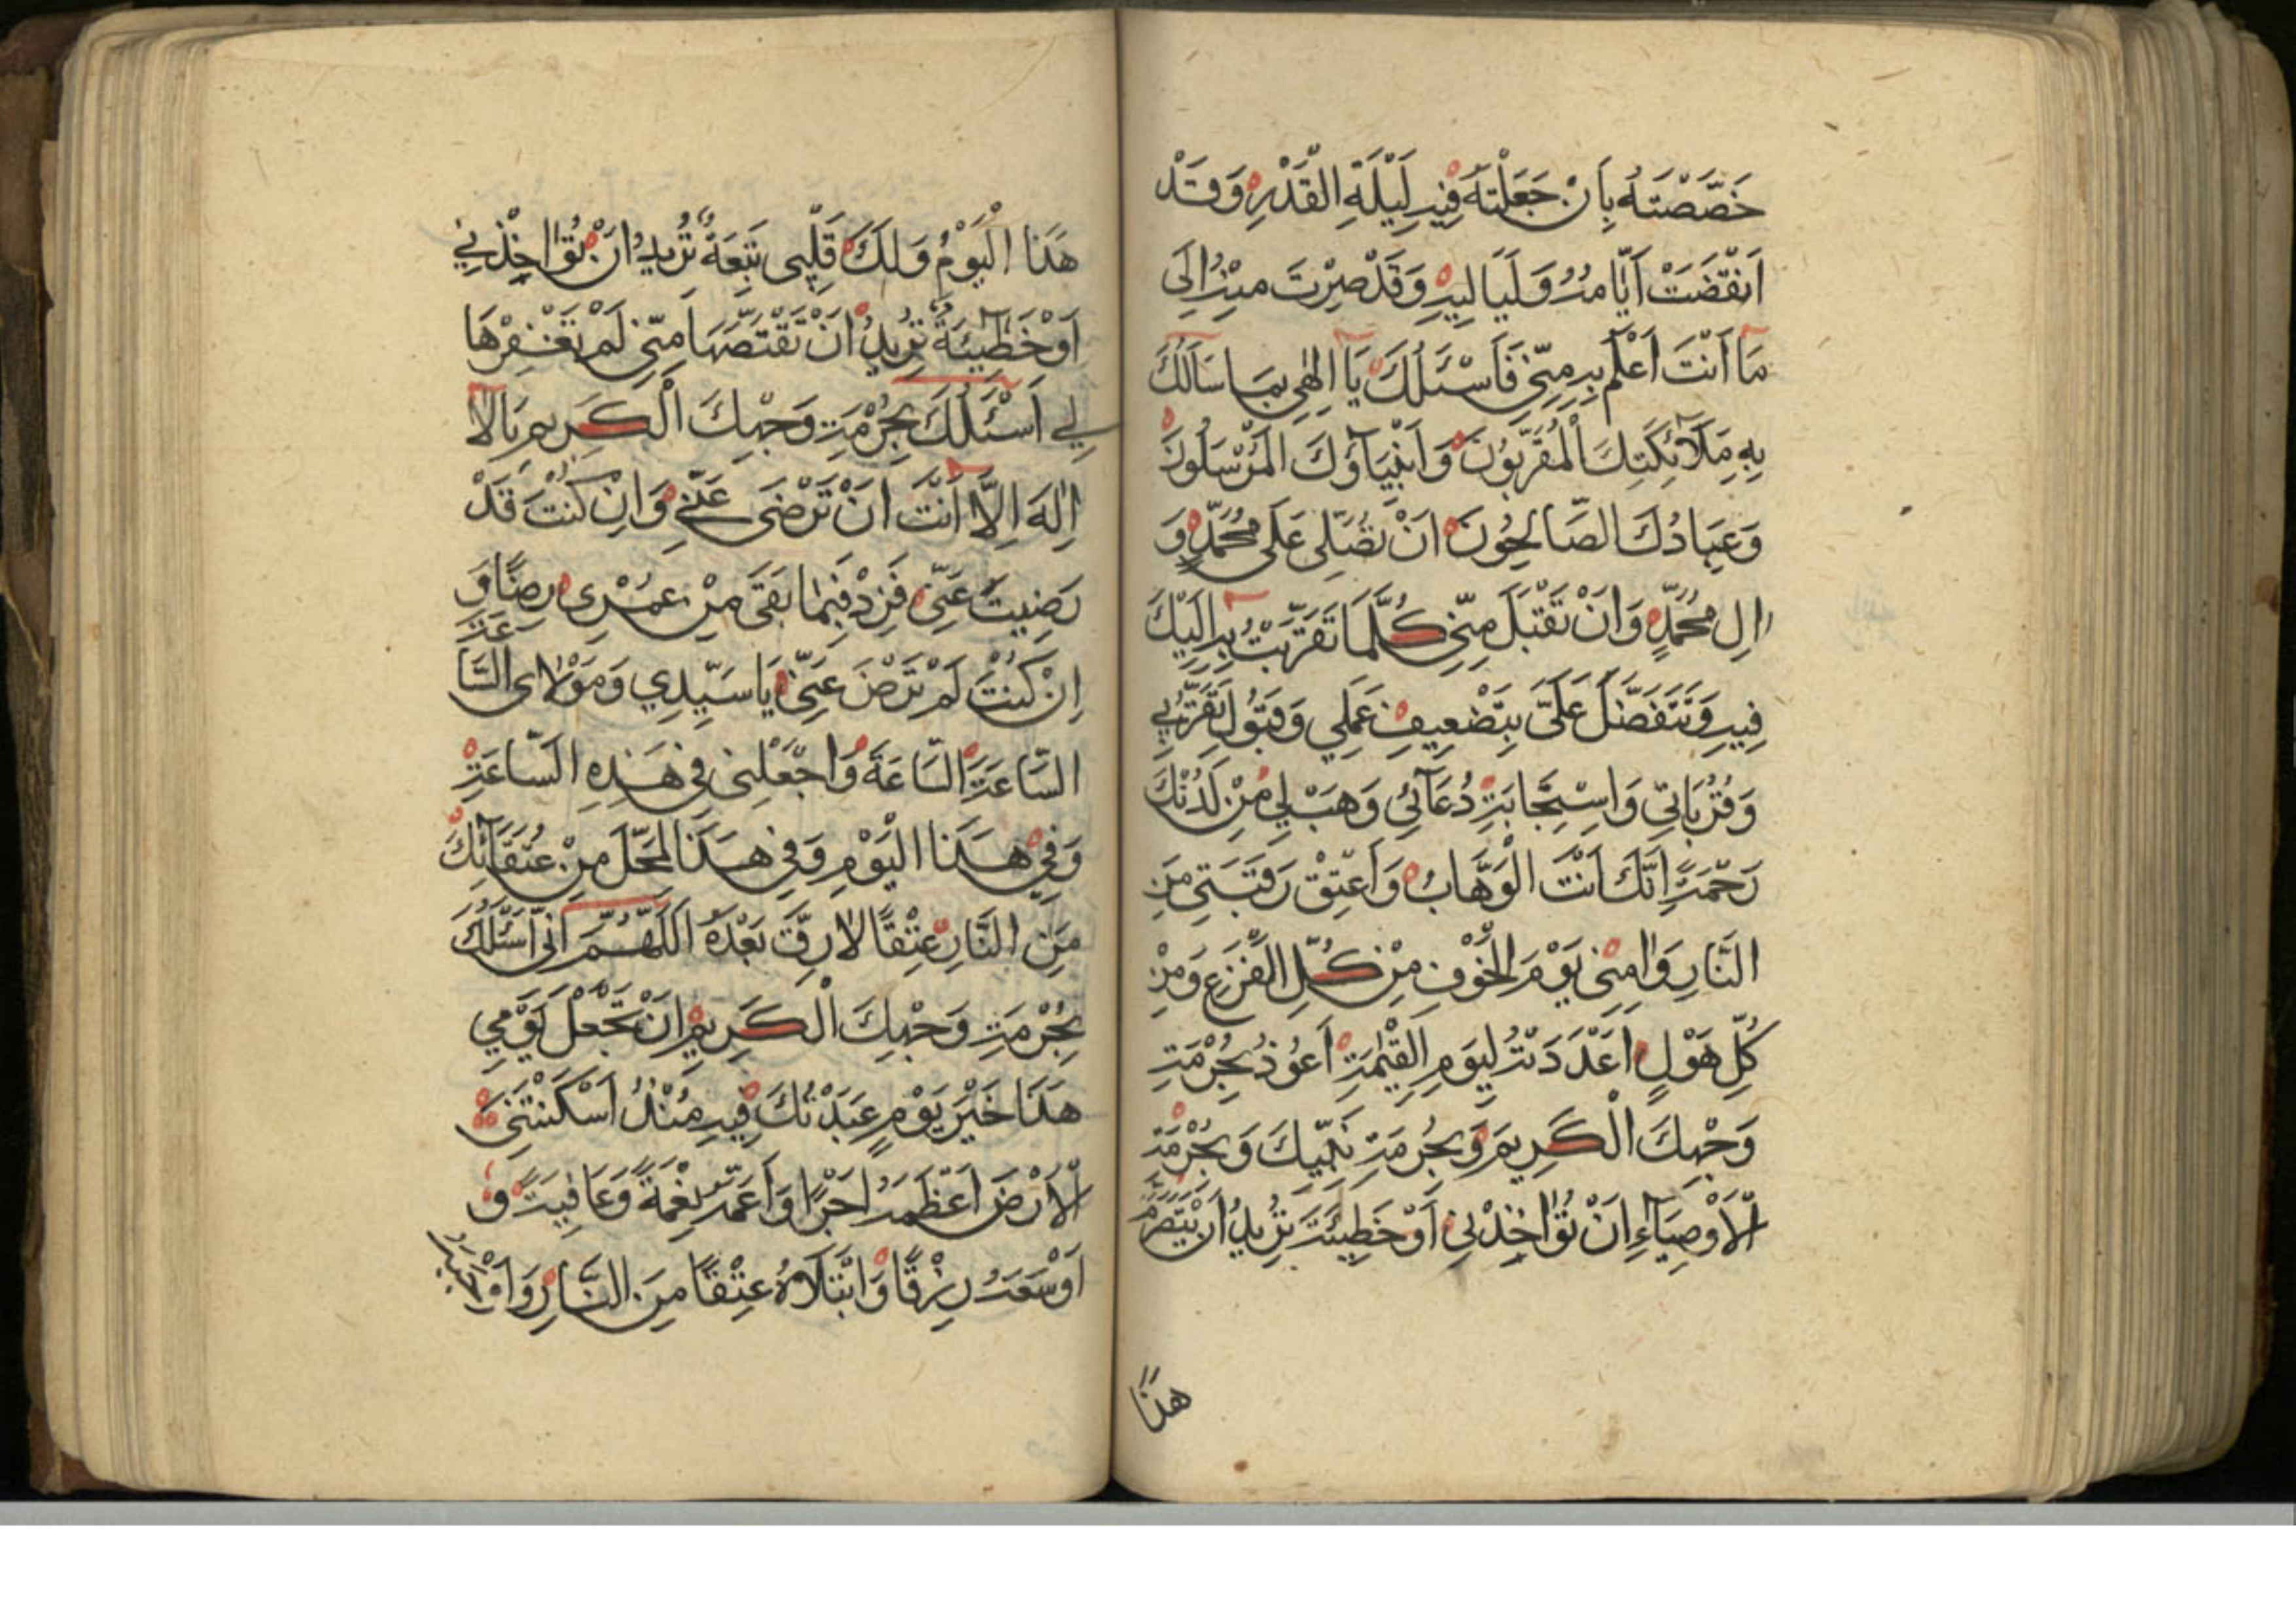 خَصَّصْتَهُ بِاَنْ جَعَلْتَهُ فِيهِ لَيْلَةِ الْقَدْرِ وَقَدْ
اَنْقَضَتْ اَيَّامُهُ وَلَيَالِيهِ وَقَدْ صِرْتَ مِنْهُ اِلَى
مَا اَنْتَ اَعْلَمُ بِهِ مِنّى فَاَسْئَلُكَ يَا اِلٰهِى بِمَا سَاَلَكَ
بِهِ مَلَآئِكَتِكَ الْمُقَرَّبُونَ وَاَنْبِيَاؤُكَ الْمُرْسَلُونَ
وَعِبَادُكَ الصَّالِحُونَ اَنْ تُصَلِّى عَلَى مُحَمَّدٍ وَ
الِ مُحَمَّدٍ وَاَنْ تَقْتَبَلَ مِنّى كُلَّمَا تَقَرَّبْتُ بِهِ اِلَيْكَ
فِيهِ وَتَتَفَضَّلَ عَلَىَّ بِتَضْعِيفِ عَمَلِي وَقَبُولِ تَقَرُّبِي
وَقُرُبَاتِي وَاسْتِجَابَةِ دُعَآئِي وَهَبْ لِي مِنْ لَدُنْكَ
رَحْمَةً اِنَّكَ اَنْتَ الْوَهَّابُ وَاَعْتِقْ رَقَبَتِى مِنَ
النَّارِ وَاٰمِنِّى يَوْمَ الْخَوْفِ مِنْ كُلِّ الْفَزَعِ وَمِنْ
كُلِّ هَوْلٍ اَعْدَدَتْهُ لِيَوْمِ الْقِيٰمَةِ اَعُوذُ بِحُرْمَةِ
وَجْهِكَ الْكَرِيمِ وَبِحُرْمَةِ نَبِيِّكَ وَبِحُرْمَةِ
الْاَوْصِيَآءِ اَنْ تُؤَاخِذْنِى اَوْ خَطِيئَةَ تُرِيدُ اَنْ
هٰذَا
هٰذَا الْيَوْمُ وَلَكَ قِبَلِى تَبِعَةٌ تُرِيدُ اَنْ تُؤَاخِذْنِي
اَوْ خَطِيئَةٌ تُرِيدُ اَنْ تَقْتَصَّهَا مِنّى لَمْ تَغْفِرْهَا
لِي اَسْئَلُكَ بِحُرْمَةِ وَجْهِكَ الْكَرِيمِ يَا لَا
اِلٰهَ اِلَّا اَنْتَ اَنْ تَرْضَى عَنِّى وَاِنْ كُنْتَ قَدْ
رَضِيتَ عَنِّى فَزِدْ فِيمَا بَقَىَ مِنْ عُمْرِى رِضًا وَ
اِنْ كُنْتَ لَمْ تَرْضَ عَنِّى يَا سَيِّدِي وَمَوْلَاى السَّاعَةَ
السَّاعَةَ السَّاعَةَ وَاجْعَلْنِى فِى هٰذِهِ السَّاعَةِ
وَفِي هٰذَا الْيَوْمِ وَفِي هٰذَا الْمَحَلِّ مِنْ عُتَقَآئِكَ
مِنَ النَّارِ عِتْقًا لَا رِقَّ بَعْدَهُ اَللّٰهُمَّ اِنِّى اَسْئَلُكَ
بِحُرْمَةِ وَجْهِكَ الْكَرِيمِ اَنْ تَجْعَلَ يَوْمِي
هٰذَا خَيْرَ يَوْمٍ عَبَدْتُكَ فِيهِ مُنْذُ اَسْكَنْتَنِى
الْاَرْضَ اَعْظَمَهُ اَجْرًا وَاَعَمَّهُ نِعْمَةً وَعَافِيَةً وَ
اَوْسَعَهُ رِزْقًا وَابْتَلَاهُ عِتْقًا مِنَ النَّارِ وَاَوْجَبَهُ